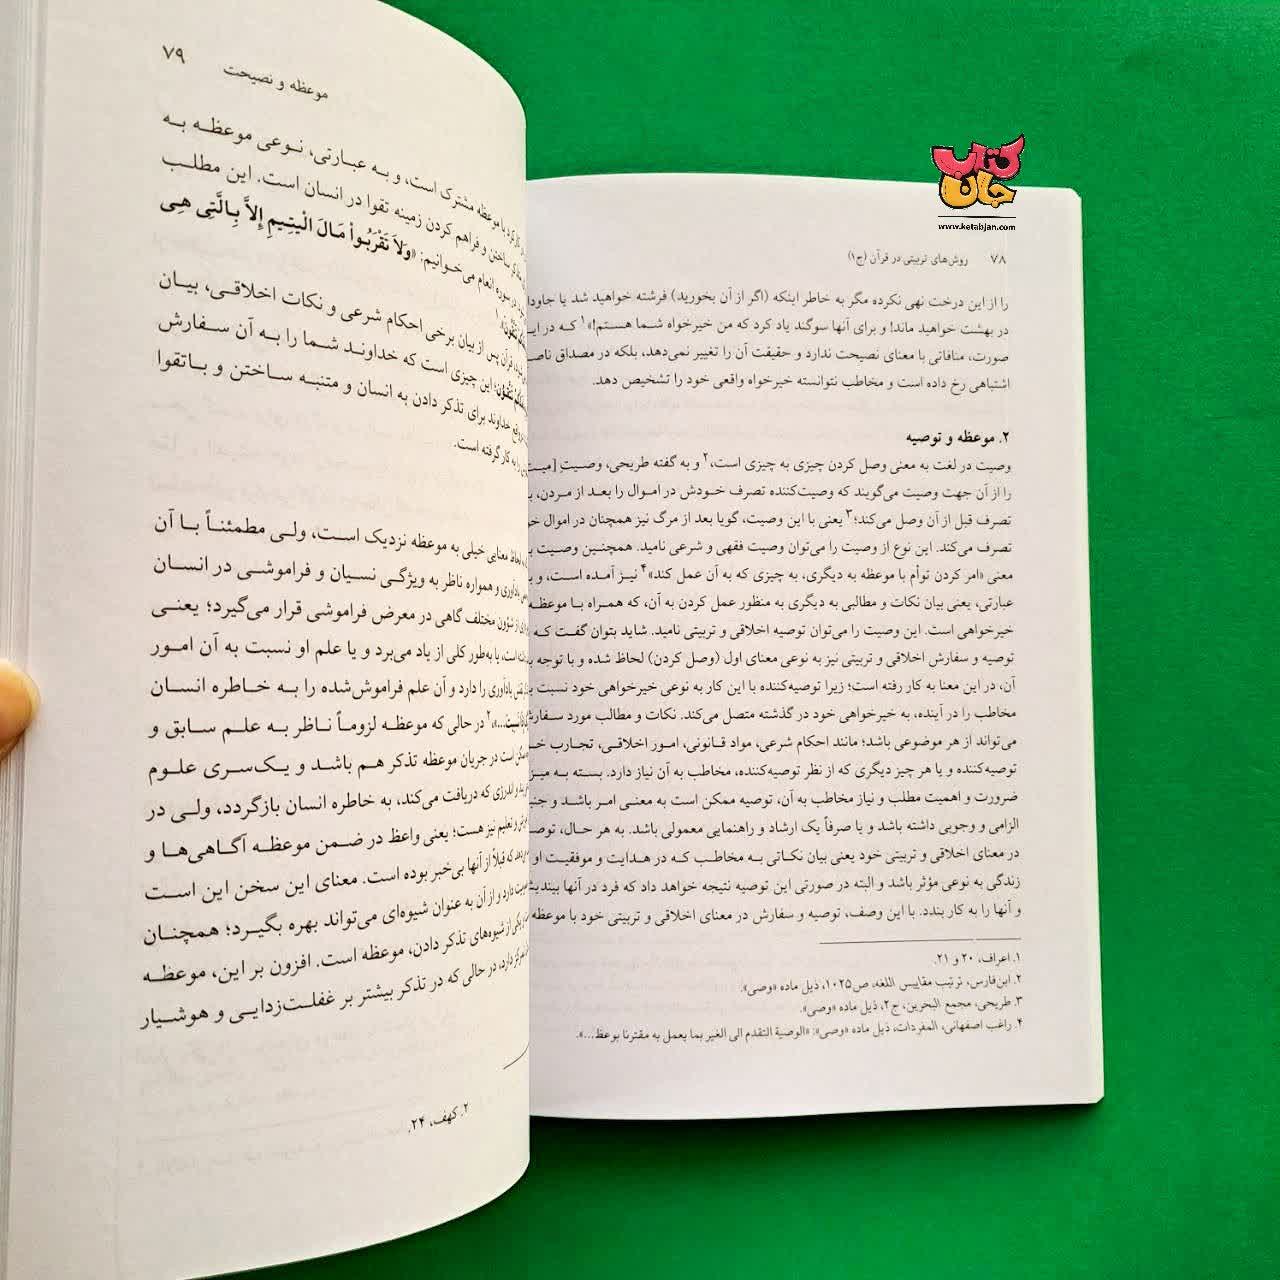 کتاب
جان
www.ketabjan.com
۷۸ روش‌های تربیتی در قرآن (ج۱)
را از این درخت نهی نکرده مگر به خاطر اینکه (اگر از آن بخورید) فرشته خواهید شد یا
در بهشت خواهید ماند! و برای آنها سوگند یاد کرد که من خیرخواه شما هستم!»۱ که در
صورت، منافاتی با معنای نصیحت ندارد و حقیقت آن را تغییر نمی‌دهد، بلکه در مصداق
اشتباهی رخ داده است و مخاطب نتوانسته خیرخواه واقعی خود را تشخیص دهد.
۲. موعظه و توصیه
وصیت در لغت به معنی وصل کردن چیزی به چیزی است،۲ و به گفته طریحی، وصیتِ
را از آن جهت وصیت می‌گویند که وصیت‌کننده تصرف خودش در اموال را بعد از مردن،
تصرف قبل از آن وصل می‌کند؛۳ یعنی با این وصیت، گویا بعد از مرگ نیز همچنان در اموال
تصرف می‌کند. این نوع از وصیت را می‌توان وصیت فقهی و شرعی نامید. همچنین وصیت
معنی «امر کردن توأم با موعظه به دیگری، به چیزی که به آن عمل کند»۴ نیز آمده است، و
عبارتی، یعنی بیان نکات و مطالبی به دیگری به منظور عمل کردن به آن، که همراه با موعظه
خیرخواهی است. این وصیت را می‌توان توصیه اخلاقی و تربیتی نامید. شاید بتوان گفت که
توصیه و سفارش اخلاقی و تربیتی نیز به نوعی معنای اول (وصل کردن) لحاظ شده و با توجه
آن، در این معنا به کار رفته است؛ زیرا توصیه‌کننده با این کار به نوعی خیرخواهی خود نسبت
مخاطب را در آینده، به خیرخواهی خود در گذشته متصل می‌کند. نکات و مطالب مورد
می‌تواند از هر موضوعی باشد؛ مانند احکام شرعی، مواد قانونی، امور اخلاقی، تجارب
توصیه‌کننده و یا هر چیز دیگری که از نظر توصیه‌کننده، مخاطب به آن نیاز دارد. بسته به
ضرورت و اهمیت مطلب و نیاز مخاطب به آن، توصیه ممکن است به معنی امر باشد و
الزامی و وجوبی داشته باشد و یا صرفاً یک ارشاد و راهنمایی معمولی باشد. به هر حال،
در معنای اخلاقی و تربیتی خود یعنی بیان نکاتی به مخاطب که در هدایت و موفقیت او
زندگی به نوعی مؤثر باشد و البته در صورتی این توصیه نتیجه خواهد داد که فرد در آنها
و آنها را به کار بندد. با این وصف، توصیه و سفارش در معنای اخلاقی و تربیتی خود با موعظه
۱. اعراف، ۲۰ و ۲۱.
۲. ابن‌فارس، ترتیب مقاییس اللغه، ص۱۰۲۵، ذیل ماده «وصی».
۳. طریحی، مجمع البحرین، ج۲، ذیل ماده «وصی».
۴. راغب اصفهانی، المفردات، ذیل ماده «وصی»: «الوصیة التقدم الی الغیر بما یعمل به مقترنا بوعظ...».
موعظه و نصیحت ۷۹
با موعظه مشترک است، و به عبارتی، نوعی موعظه به
ساختن و فراهم کردن زمینه تقوا در انسان است. این مطلب
در سوره انعام می‌خوانیم: «وَلاَ تَقْرَبُواْ مَالَ الْیَتِیمِ إِلاَّ بِالَّتِی هِی
تَتَّقُونَ».۱
قرآن پس از بیان برخی احکام شرعی و نکات اخلاقی، بیان
تَتَّقُونَ؛ این چیزی است که خداوند شما را به آن سفارش
خداوند برای تذکر دادن به انسان و متنبه ساختن و باتقوا
را به کار گرفته است.
لحاظ معنایی خیلی به موعظه نزدیک است، ولی مطمئناً با آن
یادآوری و همواره ناظر به ویژگی نسیان و فراموشی در انسان
از شؤون مختلف گاهی در معرض فراموشی قرار می‌گیرد؛ یعنی
است، یا به‌طور کلی از یاد می‌برد و یا علم او نسبت به آن امور
نقش یادآوری را دارد و آن علم فراموش‌شده را به خاطره انسان
نسیت...»،۲ در حالی که موعظه لزوماً ناظر به علم سابق و
ممکن است در جریان موعظه تذکر هم باشد و یک‌سری علوم
و اندرزی که دریافت می‌کند، به خاطره انسان بازگردد، ولی در
و تعلیم نیز هست؛ یعنی واعظ در ضمن موعظه آگاهی‌ها و
که قبلاً از آنها بی‌خبر بوده است. معنای این سخن این است
دارد و از آن به عنوان شیوه‌ای می‌تواند بهره بگیرد؛ همچنان
یکی از شیوه‌های تذکر دادن، موعظه است. افزون بر این، موعظه
دارد، در حالی که در تذکر بیشتر بر غفلت‌زدایی و هوشیار
۲. کهف، ۲۴.